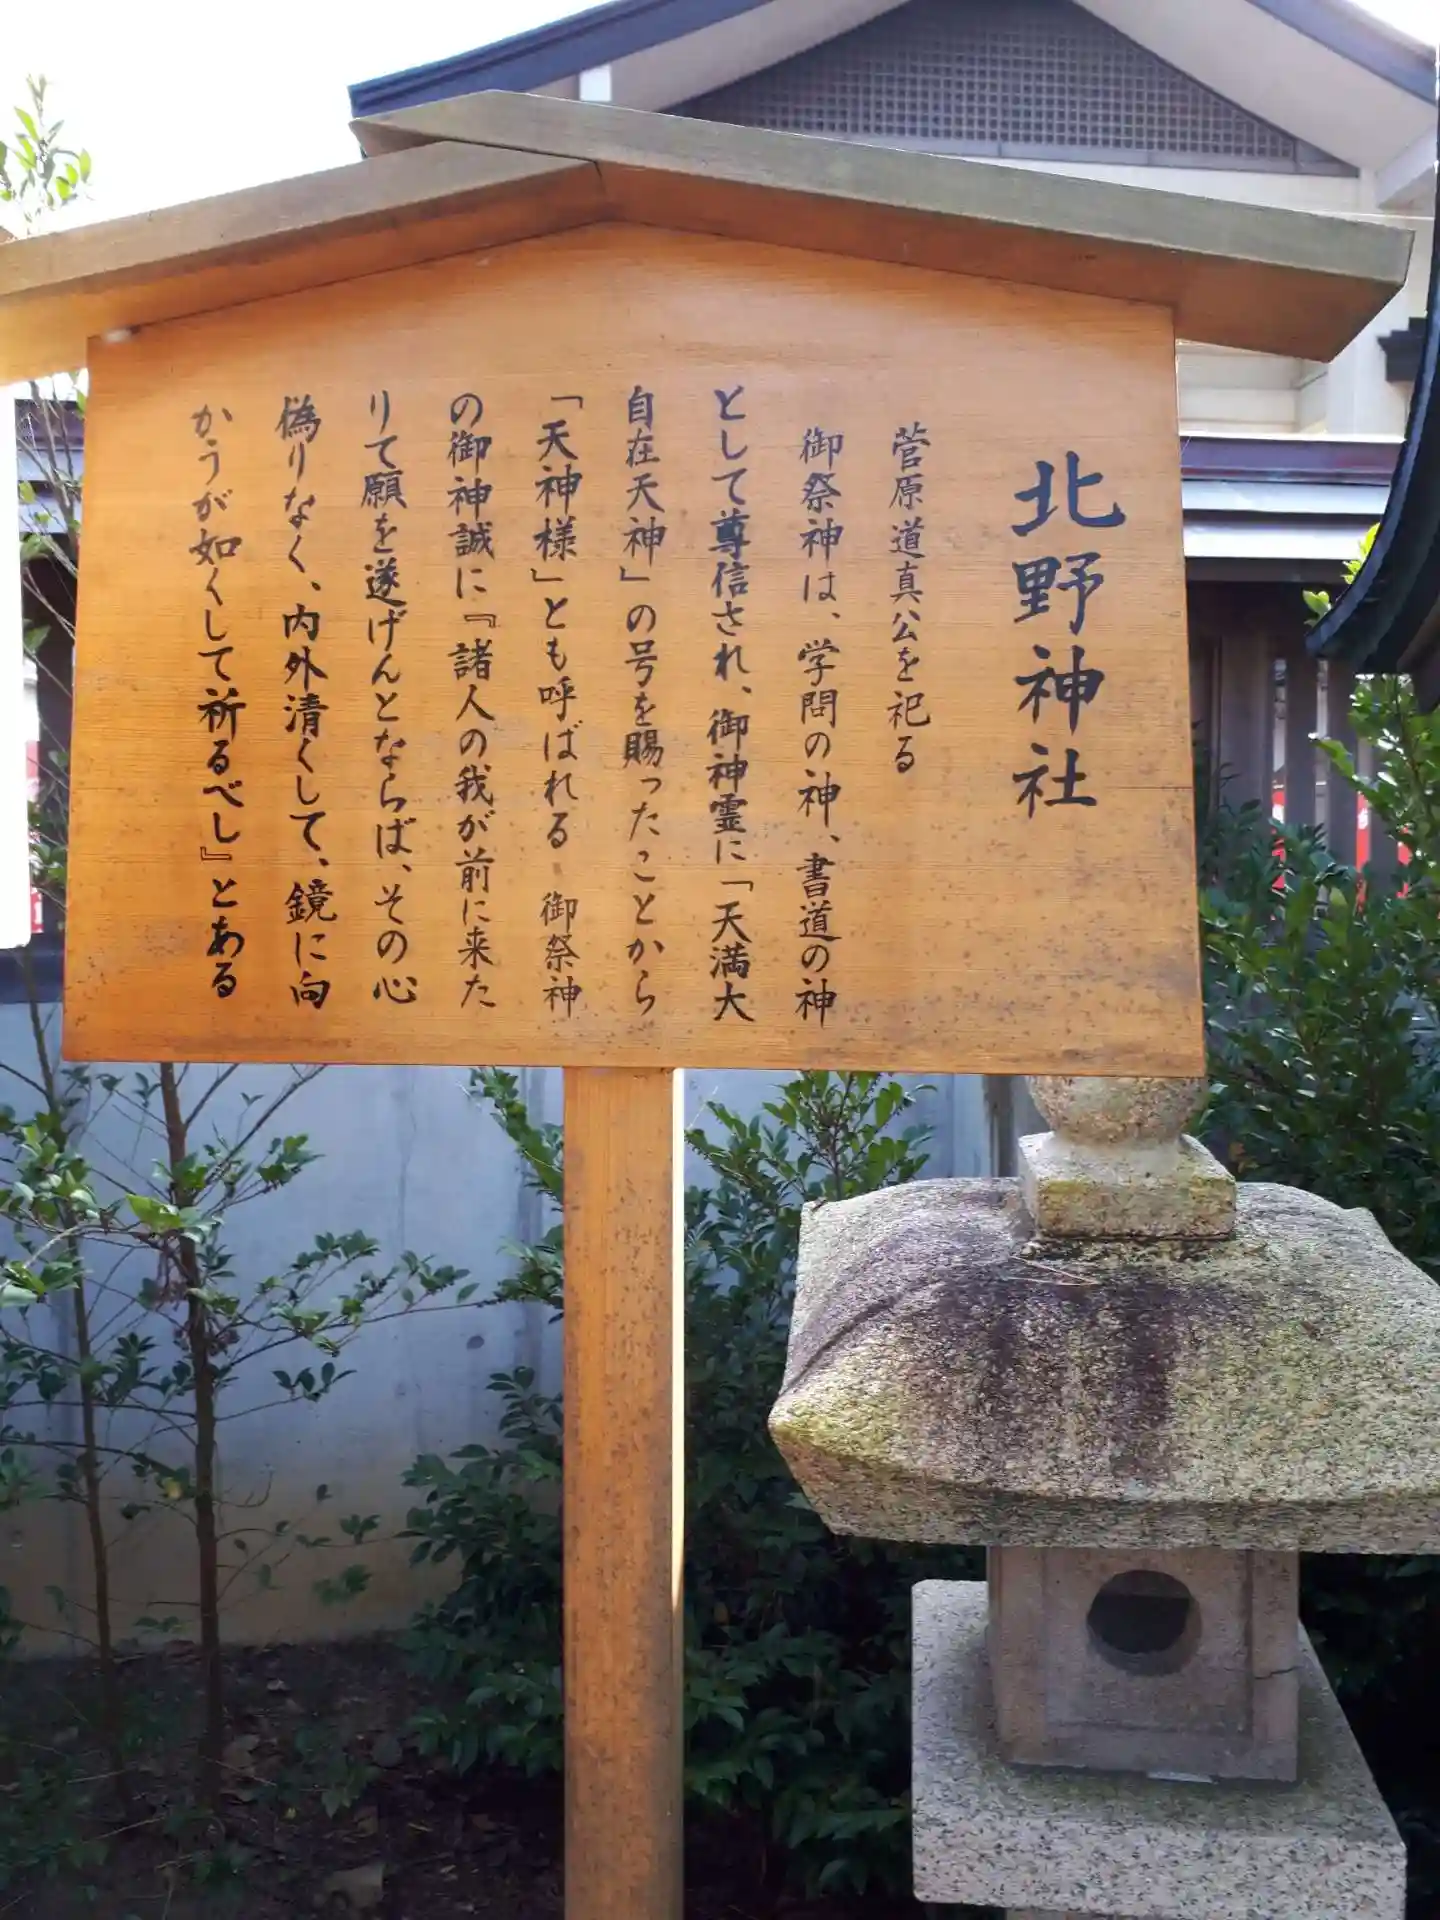 北野神社
菅原道真公を祀る
御祭神は、学問の神、書道の神
として尊信され、御神霊に「天満大
自在天神」の号を賜ったことから
「天神様」とも呼ばれる 御祭神
の御神誠に『諸人の我が前に来た
りて願を遂げんとならば、その心
偽りなく、内外清くして、鏡に向
かうが如くして祈るべし』とある